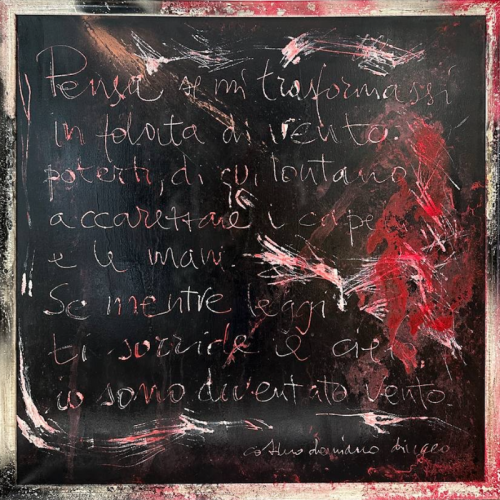 Pensa se mi trasformassi
in folata di vento.
poterti, di qui lontano
accarezzare i cape
e le mani.
Se mentre leggi
ti sorride il cie
io sono diventato vento.
cosimo damiano